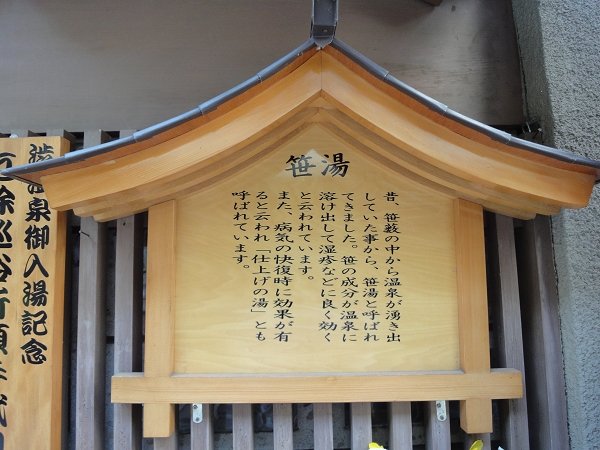 笹湯
昔、笹藪の中から温泉が湧き出
していた事から、笹湯と呼ばれ
てきました。笹の成分が温泉に
溶け出して湿疹などに良く効く
と云われています。
また、病気の快復時に効果が有
ると云われ「仕上げの湯」とも
呼ばれています。
渋温泉御入湯記念
厄除巡浴祈願手拭